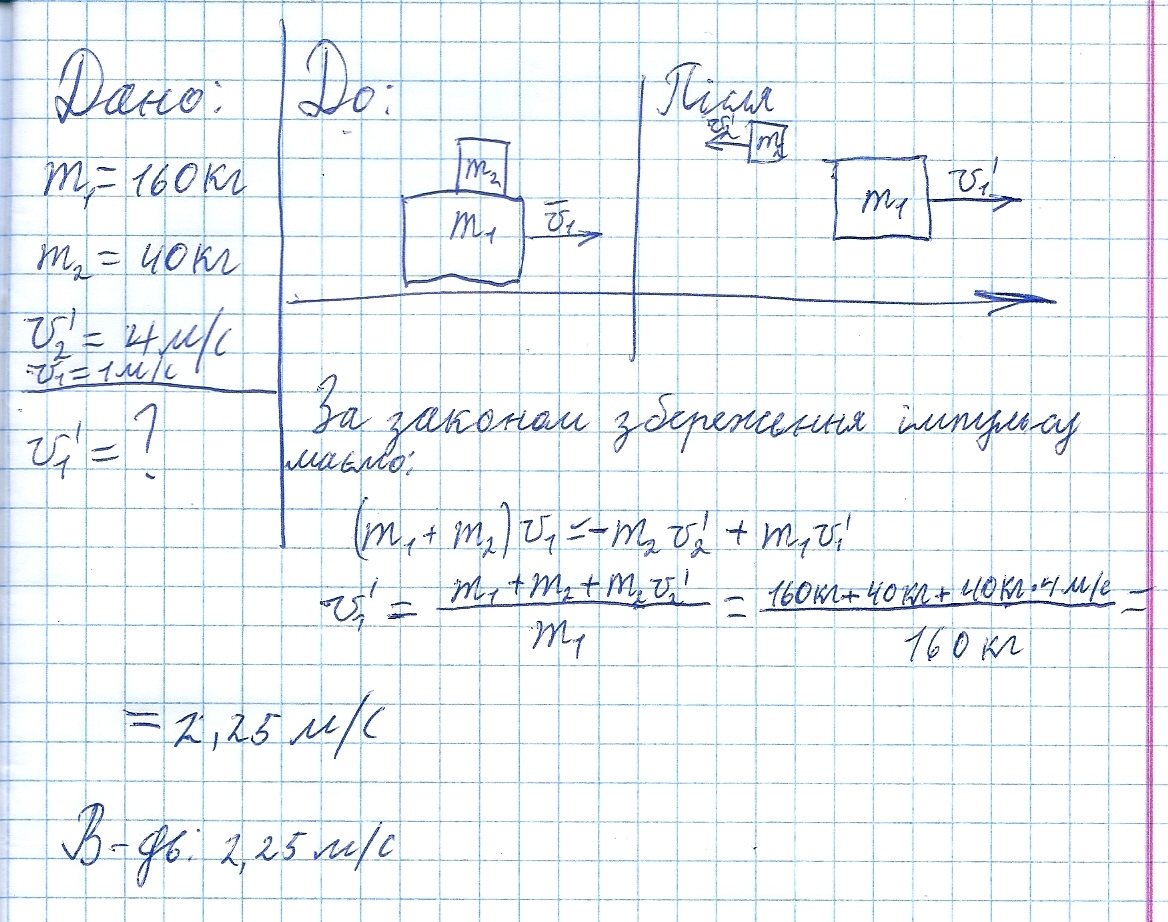 Дано:
m₁ = 160 кг
m₂ = 40 кг
v₂' = 4 м/с
v₁ = 1 м/с
v₁' = ?
До:
m₂
m₁
v̅₁
Після
v₂'
m₂
m₁
v₁'
За законом збереження імпульсу
маємо:
(m₁ + m₂) v₁ = -m₂ v₂' + m₁ v₁'
v₁' = (m₁ + m₂ + m₂ v₂') / m₁ = (160 кг + 40 кг + 40 кг · 4 м/с) / 160 кг =
= 2,25 м/с
В-дь: 2,25 м/с